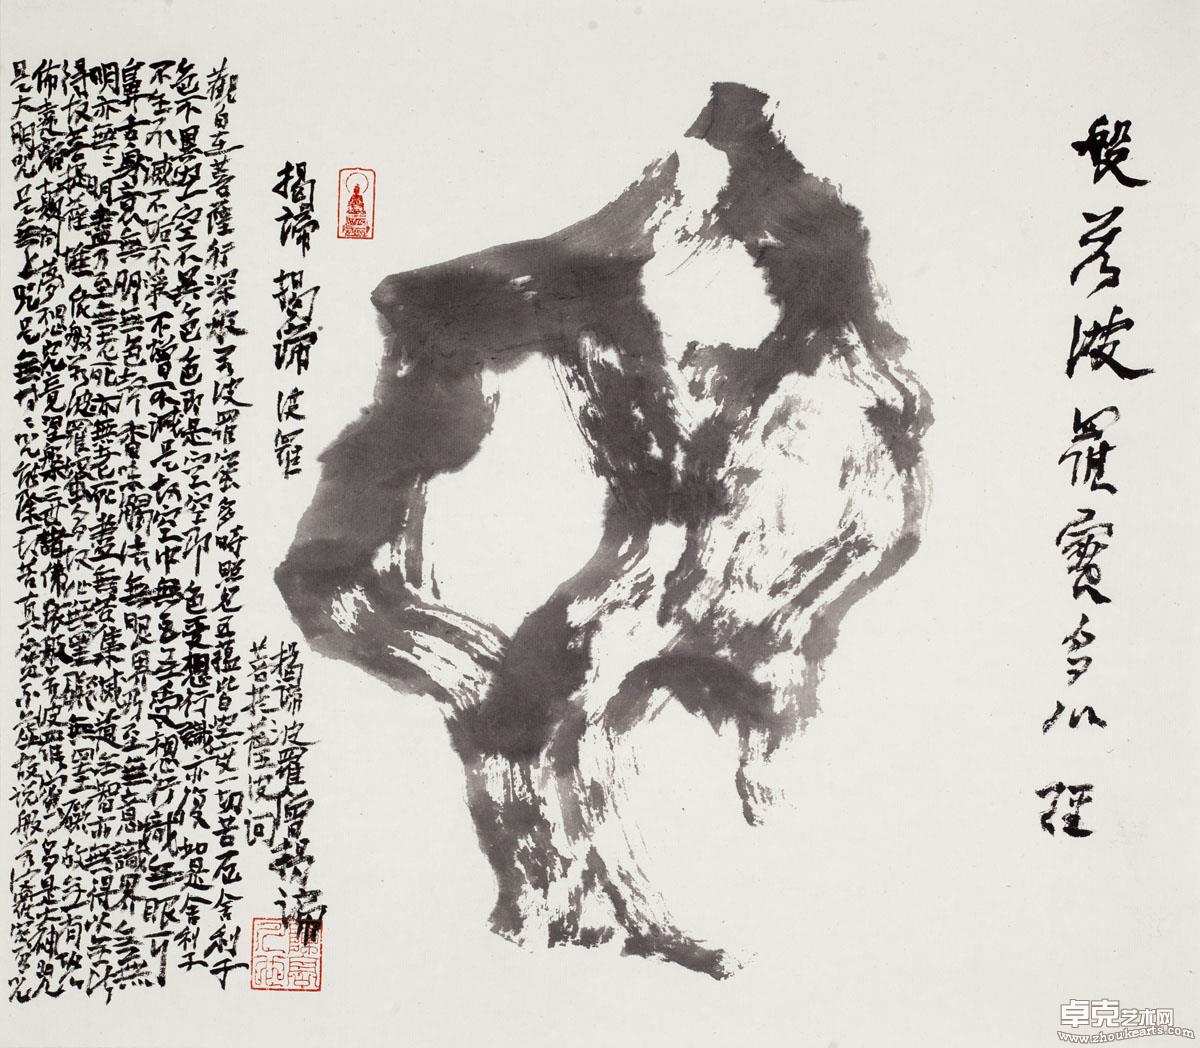 般若波羅蜜多心經
觀自在菩薩行深般若波羅蜜多時照見五蘊皆空度一切苦厄舍利子
色不異空空不異色色即是空空即色受想行識亦復如是舍利子
不生不滅不垢不淨不增不減是故空中無色無受想行識無眼耳
鼻舌身意無明無色聲香味觸法無眼界乃至無意識界無無
明亦無々明盡乃至無老死亦無老死盡無苦集滅道無智亦無得以無所
得故菩提薩埵依般若波羅蜜多故心無罣礙無罣礙故無有恐
怖遠離顛倒夢想究竟涅槃三世諸佛依般若波羅蜜多是大神咒
是大明咒是無上咒是無等々咒能除一切苦真實不虛故說般若波羅蜜多咒
揭諦揭諦波羅
揭諦波羅僧揭諦
菩提薩婆訶
卓克艺术网
www.zhoukearts.com